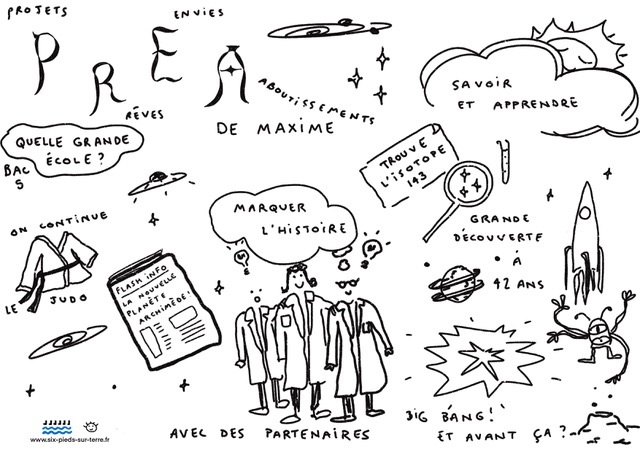 PROJETS
ENVIES
PREA
RÊVES
ABOUTISSEMENTS
DE MAXIME
SAVOIR
ET APPRENDRE
QUELLE GRANDE
ÉCOLE?
BAC
5
TROUVE
L'ISOTOPE
143
MARQUER
L'HISTOIRE
ON CONTINUE
LE JUDO
GRANDE
DÉCOUVERTE
À
42 ANS
FLASH INFO
LA NOUVELLE
PLANÈTE
ARCHIMÈDE!
BIG BANG!
ET AVANT ÇA?
AVEC DES PARTENAIRES
www.six-pieds-sur-terre.fr